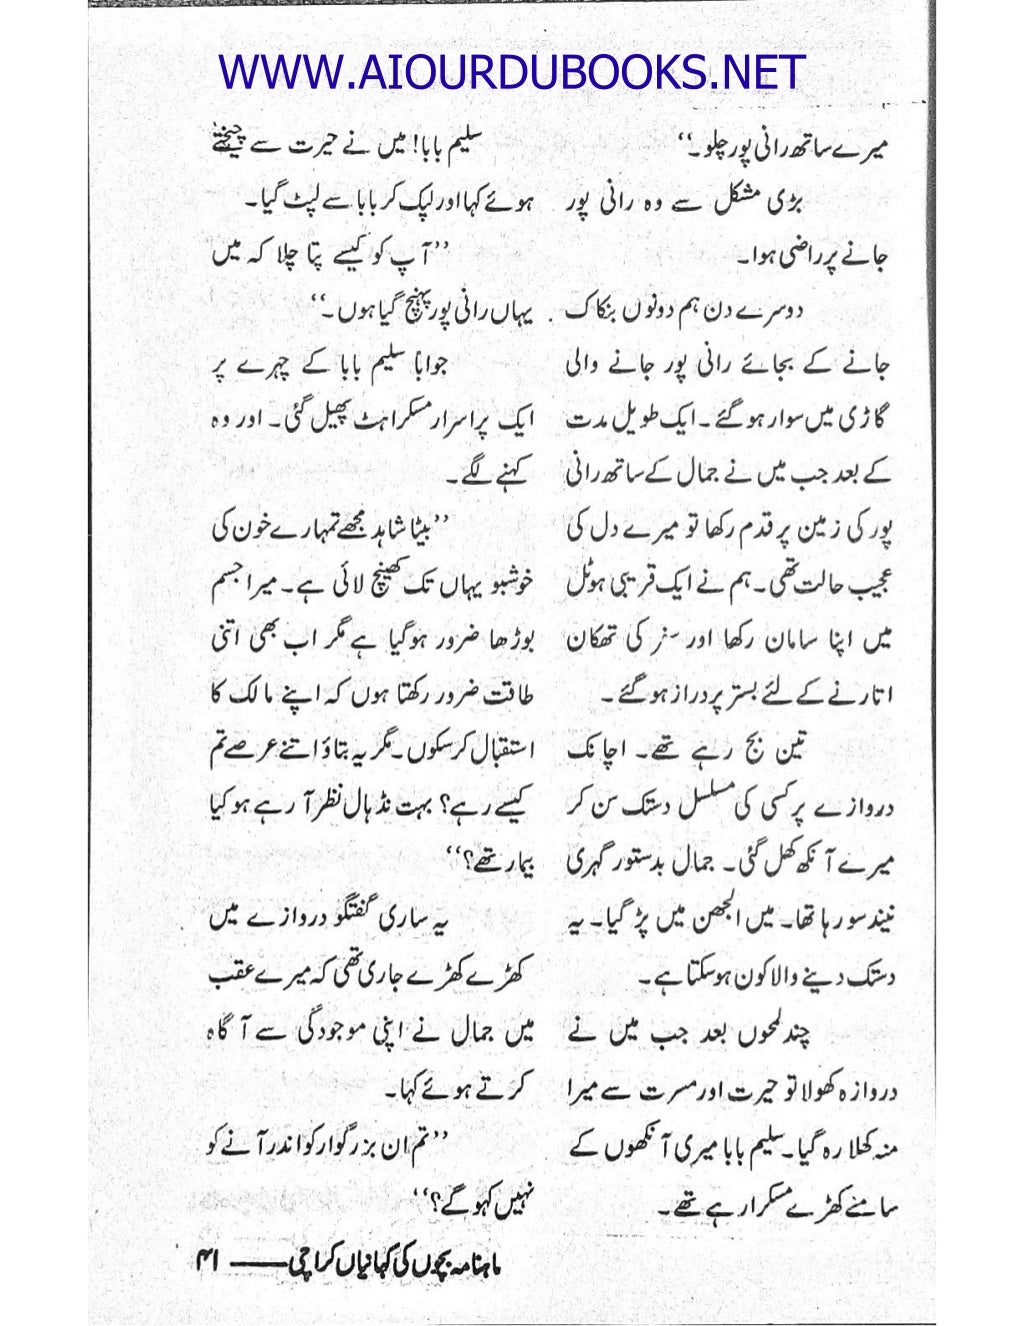 WWW.AIOURDUBOOKS.NET
میرے ساتھ رانی پور چلو۔‘‘
بڑی مشکل سے وہ رانی پور
جانے پر راضی ہوا۔
دوسرے دن ہم دونوں بنکاک
جانے کے بجائے رانی پور جانے والی
گاڑی میں سوار ہو گئے۔ ایک طویل مدت
کے بعد جب میں نے جمال کے ساتھ رانی
پور کی زمین پر قدم رکھا تو میرے دل کی
عجیب حالت تھی۔ ہم نے ایک قریبی ہوٹل
میں اپنا سامان رکھا اور سفر کی تھکان
اتارنے کے لئے بستر پر دراز ہو گئے۔
تین بج رہے تھے۔ اچانک
دروازے پر کسی کی مسلسل دستک سن کر
میرے آنکھ کھل گئی۔ جمال بدستور گہری
نیند سو رہا تھا۔ میں الجھن میں پڑ گیا۔ یہ
دستک دینے والا کون ہو سکتا ہے۔
چند لمحوں بعد جب میں نے
دروازہ کھولا تو حیرت اور مسرت سے میرا
منہ کھلا رہ گیا۔ سلیم بابا میری آنکھوں کے
سامنے کھڑے مسکرا رہے تھے۔
سلیم بابا! میں نے حیرت سے چیختے
ہوئے کہا اور لپک کر بابا سے لپٹ گیا۔
’’آپ کو کیسے پتا چلا کہ میں
یہاں رانی پور پہنچ گیا ہوں۔‘‘
جواباً سلیم بابا کے چہرے پر
ایک پراسرار مسکراہٹ پھیل گئی۔ اور وہ
کہنے لگے۔
’’بیٹا شاہد مجھے تمہارے خون کی
خوشبو یہاں تک کھینچ لائی ہے۔ میرا جسم
بوڑھا ضرور ہو گیا ہے مگر اب بھی اتنی
طاقت ضرور رکھتا ہوں کہ اپنے مالک کا
استقبال کر سکوں۔ مگر یہ بتاؤ اتنے عرصے تم
کیسے رہے؟ بہت نڈہال نظر آ رہے ہو کیا
بیمار تھے؟‘‘
یہ ساری گفتگو دروازے میں
کھڑے کھڑے جاری تھی کہ میرے عقب
میں جمال نے اپنی موجودگی سے آگاہ
کرتے ہوئے کہا۔
’’تم ان بزرگوار کو اندر آنے کو
نہیں کہو گے؟‘‘
ماہنامہ بچوں کی کہانیاں کراچی —— ۴۱